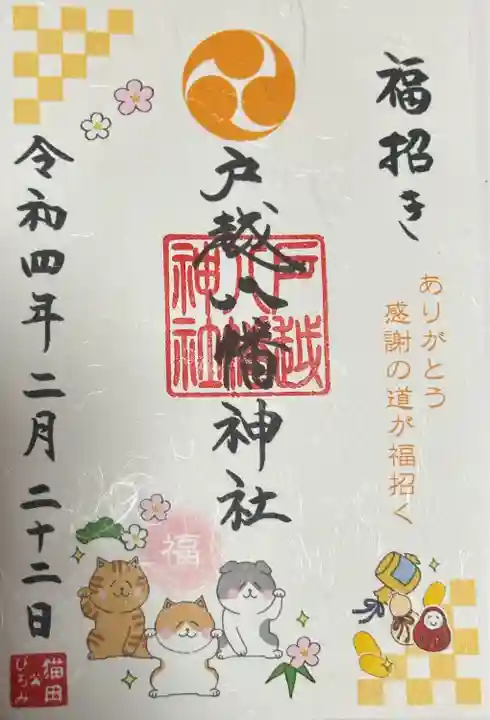 福招き
ありがとう
感謝の道が福招く
戸越八幡神社
戸越
八幡
神社
令和四年二月二十二日
福
猫田
ひろみ